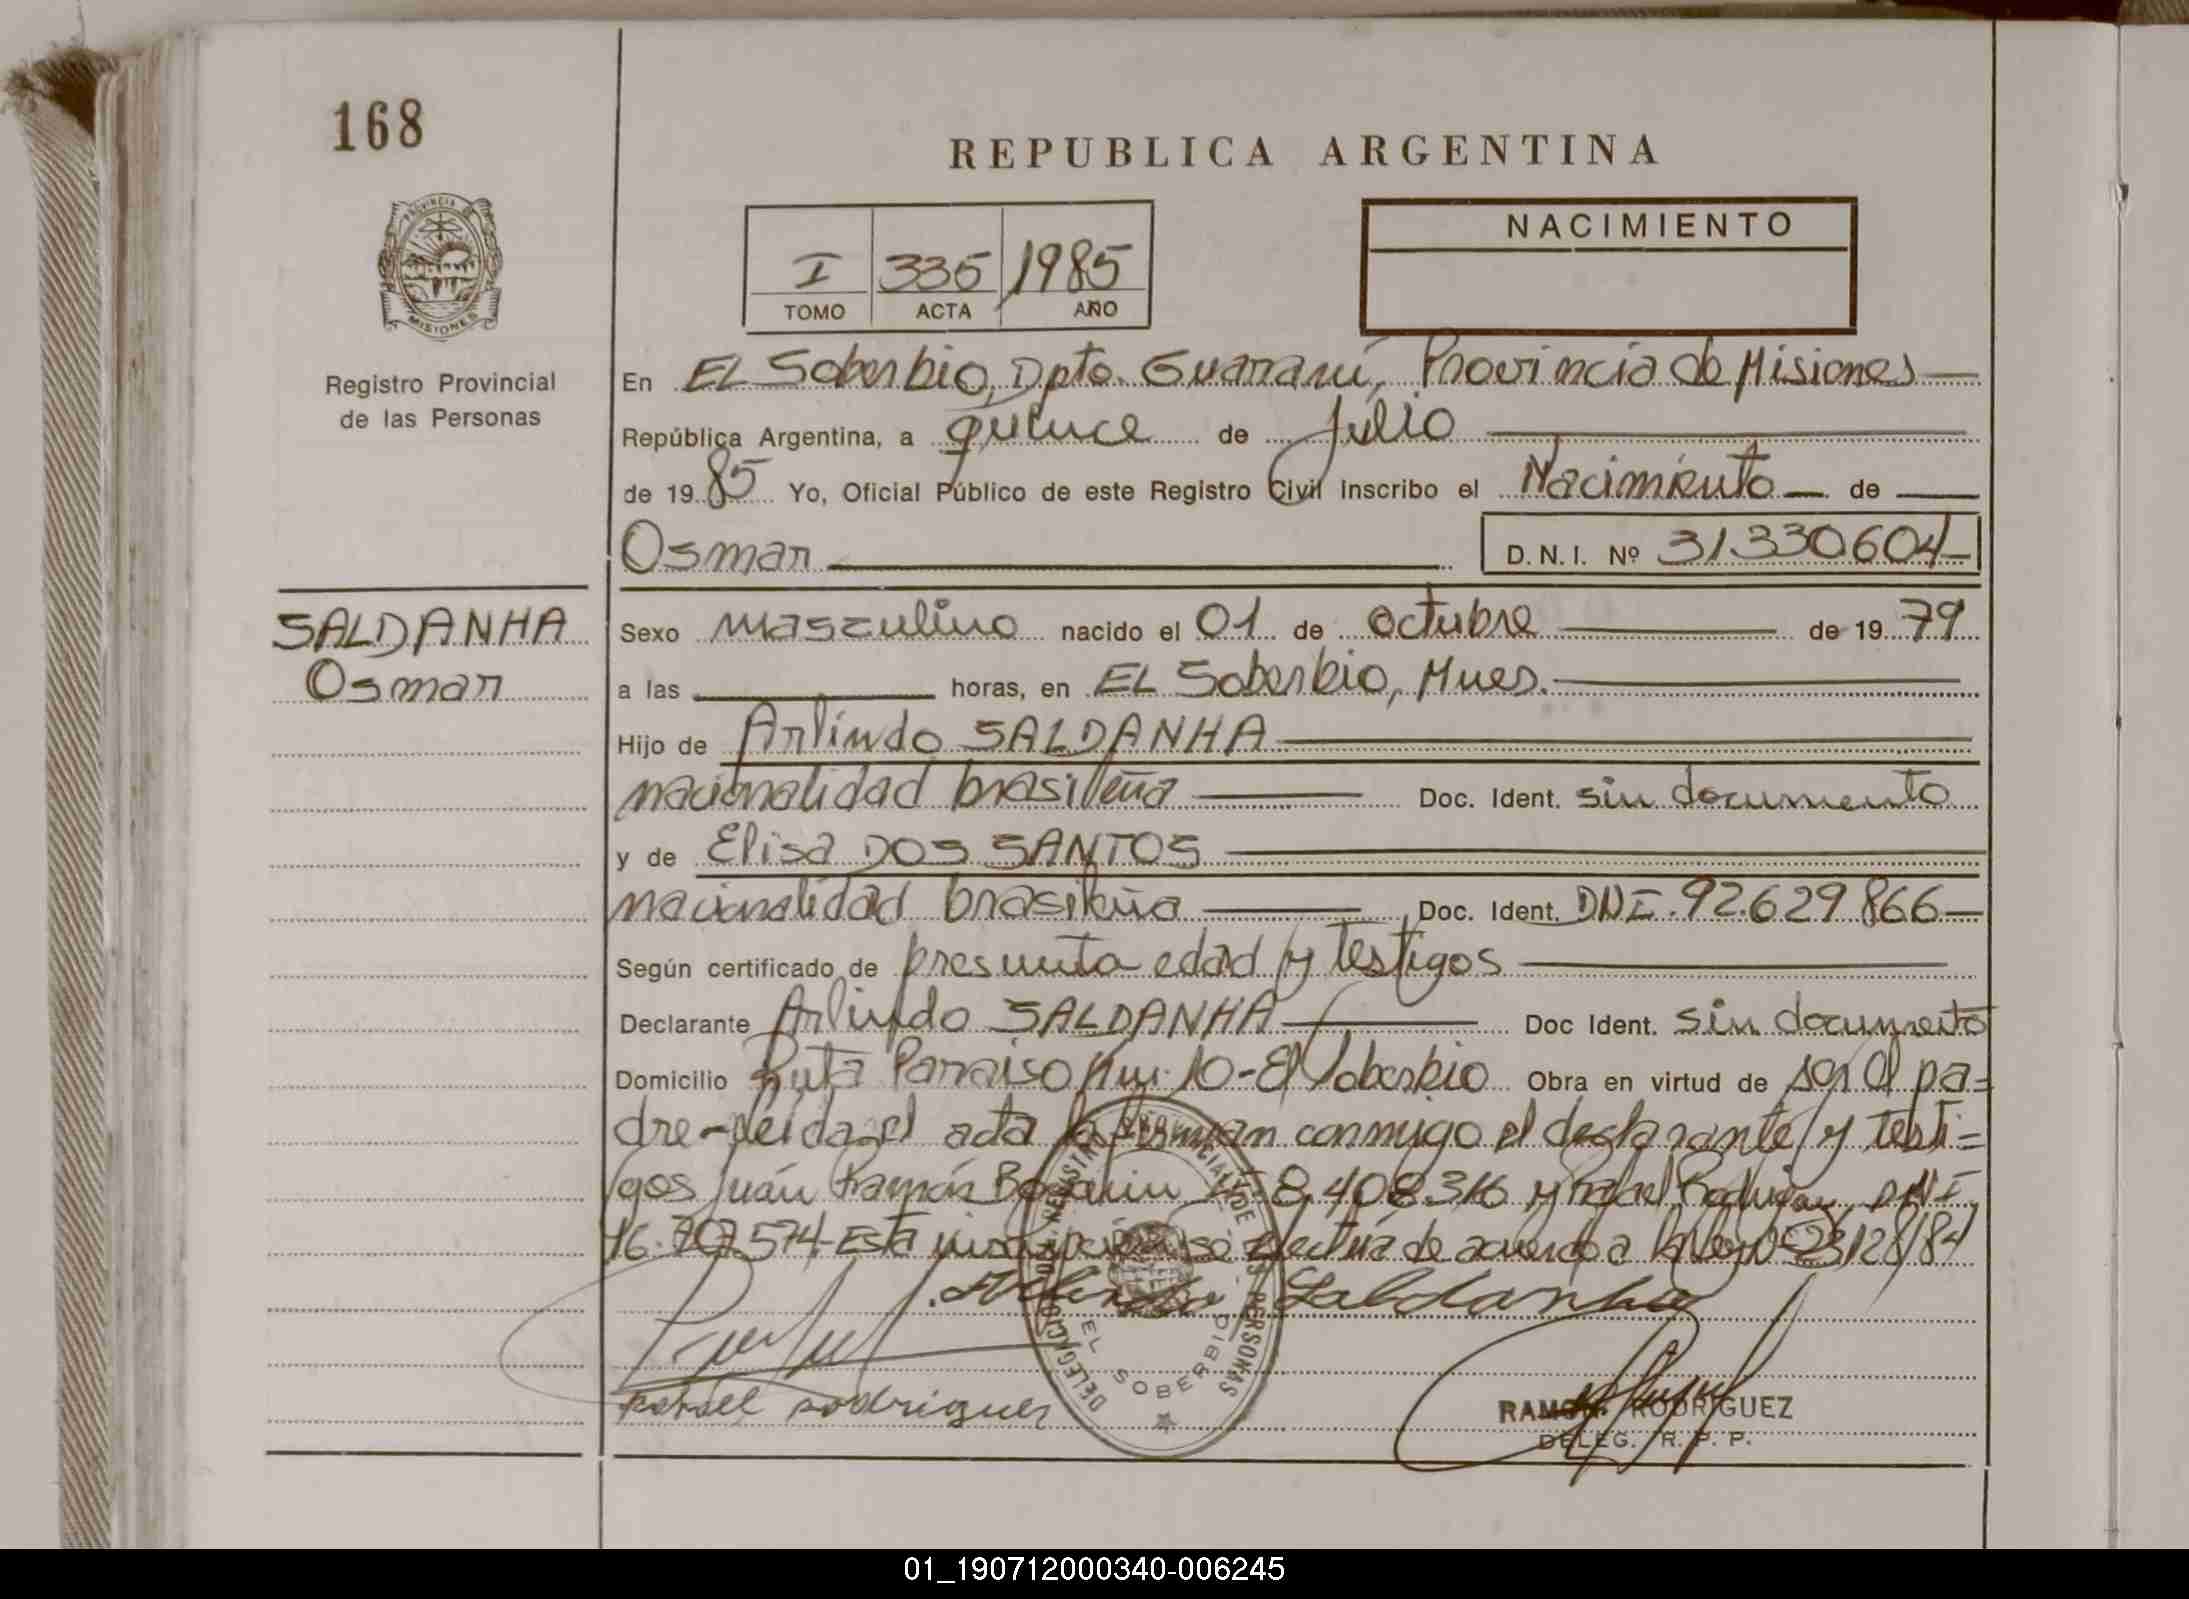 168
REPUBLICA ARGENTINA
NACIMIENTO
I 335 1985
TOMO ACTA AÑO
PROVINCIA DE
MISIONES
Registro Provincial
de las Personas
En EL Soberbio, Dpto. Guaraní, Provincia de Misiones
República Argentina, a quince de julio
de 1985 Yo, Oficial Público de este Registro Civil inscribo el Nacimiento de
Osmar D.N.I. Nº 31.330.604
SALDANHA
Osmar
Sexo masculino nacido el 01 de octubre de 1979
a las horas, en EL Soberbio, Mnes.
Hijo de Arlindo SALDANHA
nacionalidad brasileña Doc. Ident. sin documento
y de Elisa DOS SANTOS
nacionalidad brasileña Doc. Ident. DNI. 92.629.866
Según certificado de presunta edad y testigos
Declarante Arlindo SALDANHA Doc Ident. sin documento
Domicilio Ruta Paraiso Km. 10-El Soberbio Obra en virtud de ser el pa=
dre-leida el acta la firman conmigo el declarante y testi=
gos Juán Ramón Bogarin 8.408.316 y Rafael Rodriguez DNI
16.707.574-Esta inscripción se efectúa de acuerdo a la ley nº 23.128/84
Arlindo Saldanha
Rafael rodriguez
DELEGACION REGISTRO PROVINCIAL DE LAS PERSONAS
EL SOBERBIO
RAMON RODRIGUEZ
DELEG. R. P. P.
01_190712000340-006245